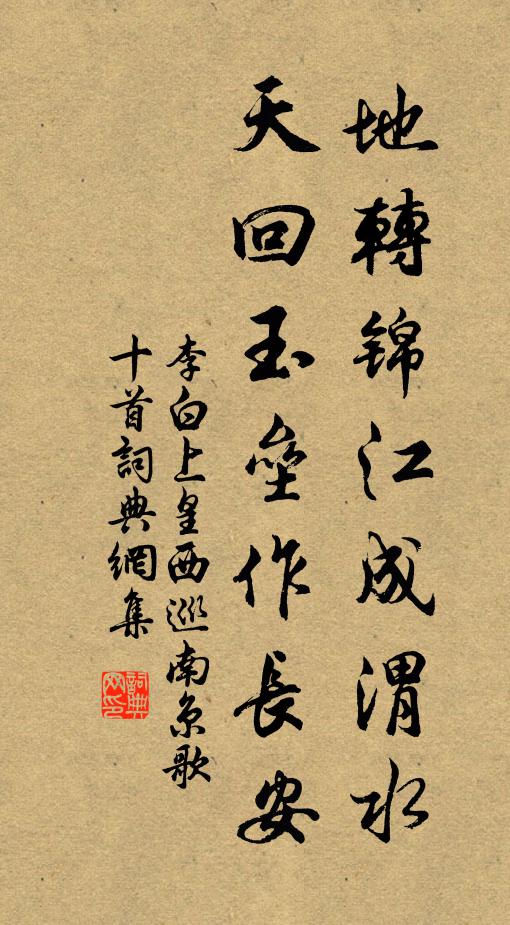 地轉錦江成渭水
天回玉壘作長安
李白上皇西巡南京歌
十首詞典網集
詞典
网印